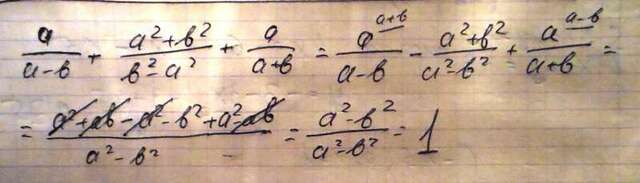 a/(a-b) + (a²+b²)/(b²-a²) + a/(a+b) = a^(a+b)/(a-b) - (a²+b²)/(a²-b²) + a^(a-b)/(a+b) =
= (a²+ab-a²-b²+a²-ab)/(a²-b²) = (a²-b²)/(a²-b²) = 1